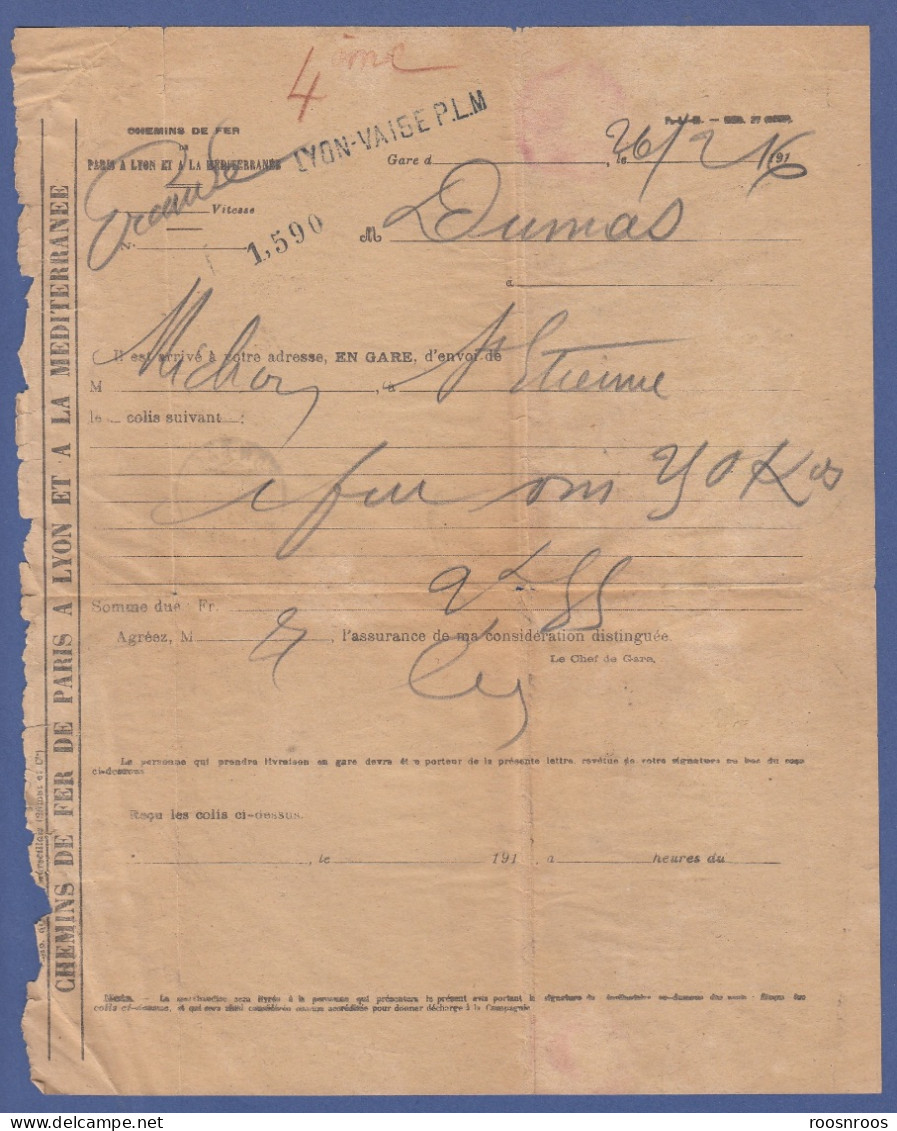 4 ème
CHEMINS DE FER
DE
PARIS A LYON ET A LA MÉDITERRANÉE
LYON-VAISE P.L.M
Gare d , le 26/2 1916
Grande Vitesse
N° 1,590
M Dumas
a
Il est arrivé à votre adresse, EN GARE, d'envoi de
M , à St Etienne
le colis suivant :
Somme due : Fr. 55
Agréez, M , l'assurance de ma considération distinguée.
Le Chef de Gare,
La personne qui prendra livraison en gare devra être porteur de la présente lettre, revêtue de votre signature au bas du reçu
ci-dessous
Reçu les colis ci-dessus.
, le 191 , à heures du
La marchandise sera livrée à la personne qui présentera le présent avis portant la signature du destinataire
colis ci-dessus, et qui sera ainsi considérée comme accréditée pour donner décharge à la Compagnie
CHEMINS DE FER DE PARIS A LYON ET A LA MÉDITERRANÉE
roosnroos